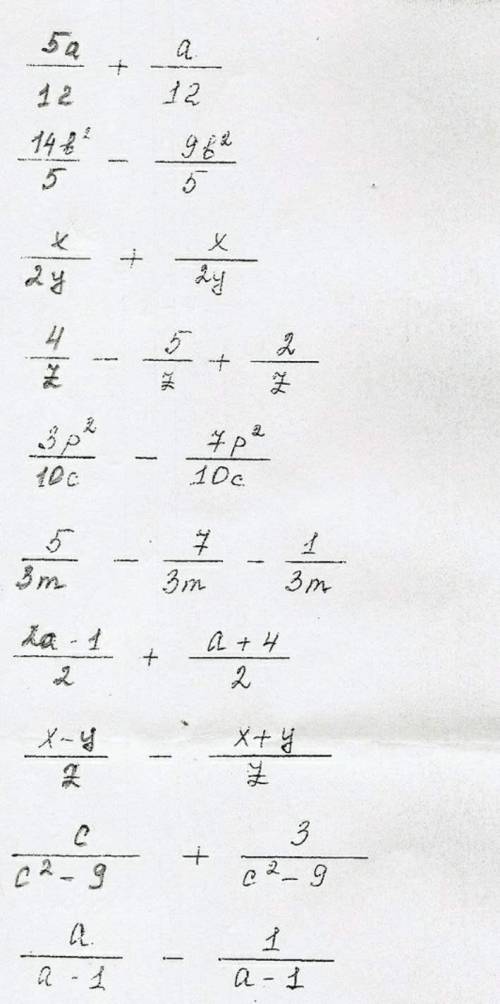 5a/12 + a/12
14b²/5 − 9b²/5
x/2y + x/2y
4/z − 5/z + 2/z
3p²/10c − 7p²/10c
5/3m − 7/3m − 1/3m
2a - 1/2 + a + 4/2
x-y/z − x+y/z
c/c²-9 + 3/c²-9
a/a-1 − 1/a-1